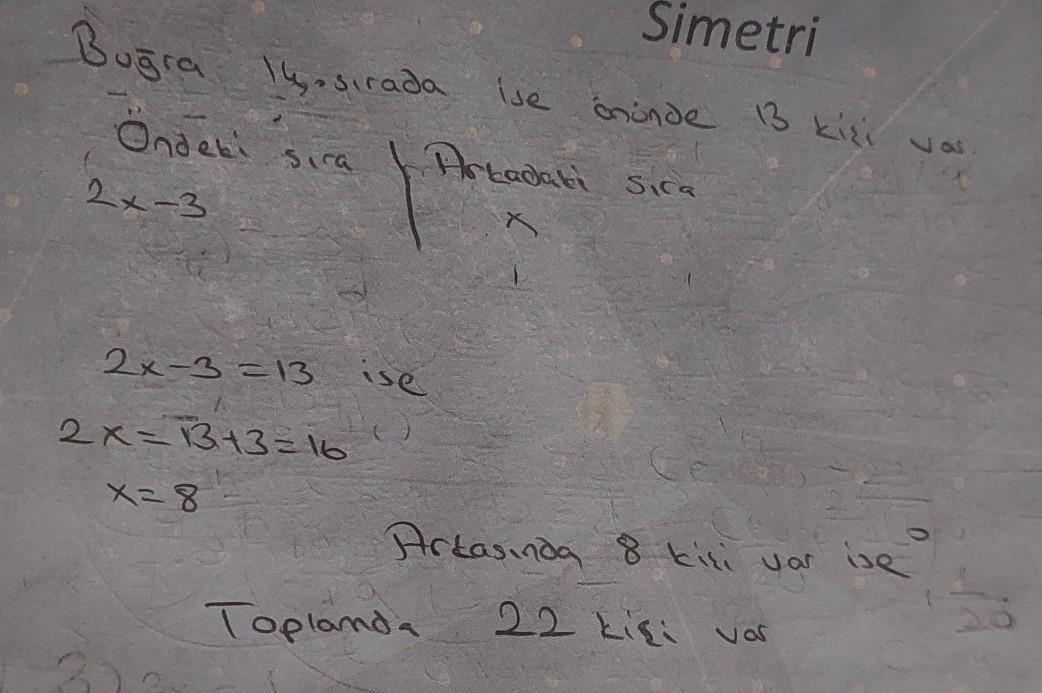 Simetri
Buğra 14. sırada ise önünde 13 kişi var.
Öndeki sıra Arkadaki sıra
2x-3 x
2x-3=13 ise
2x=13+3=16
x=8
Arkasında 8 kişi var ise
Toplamda 22 kişi var